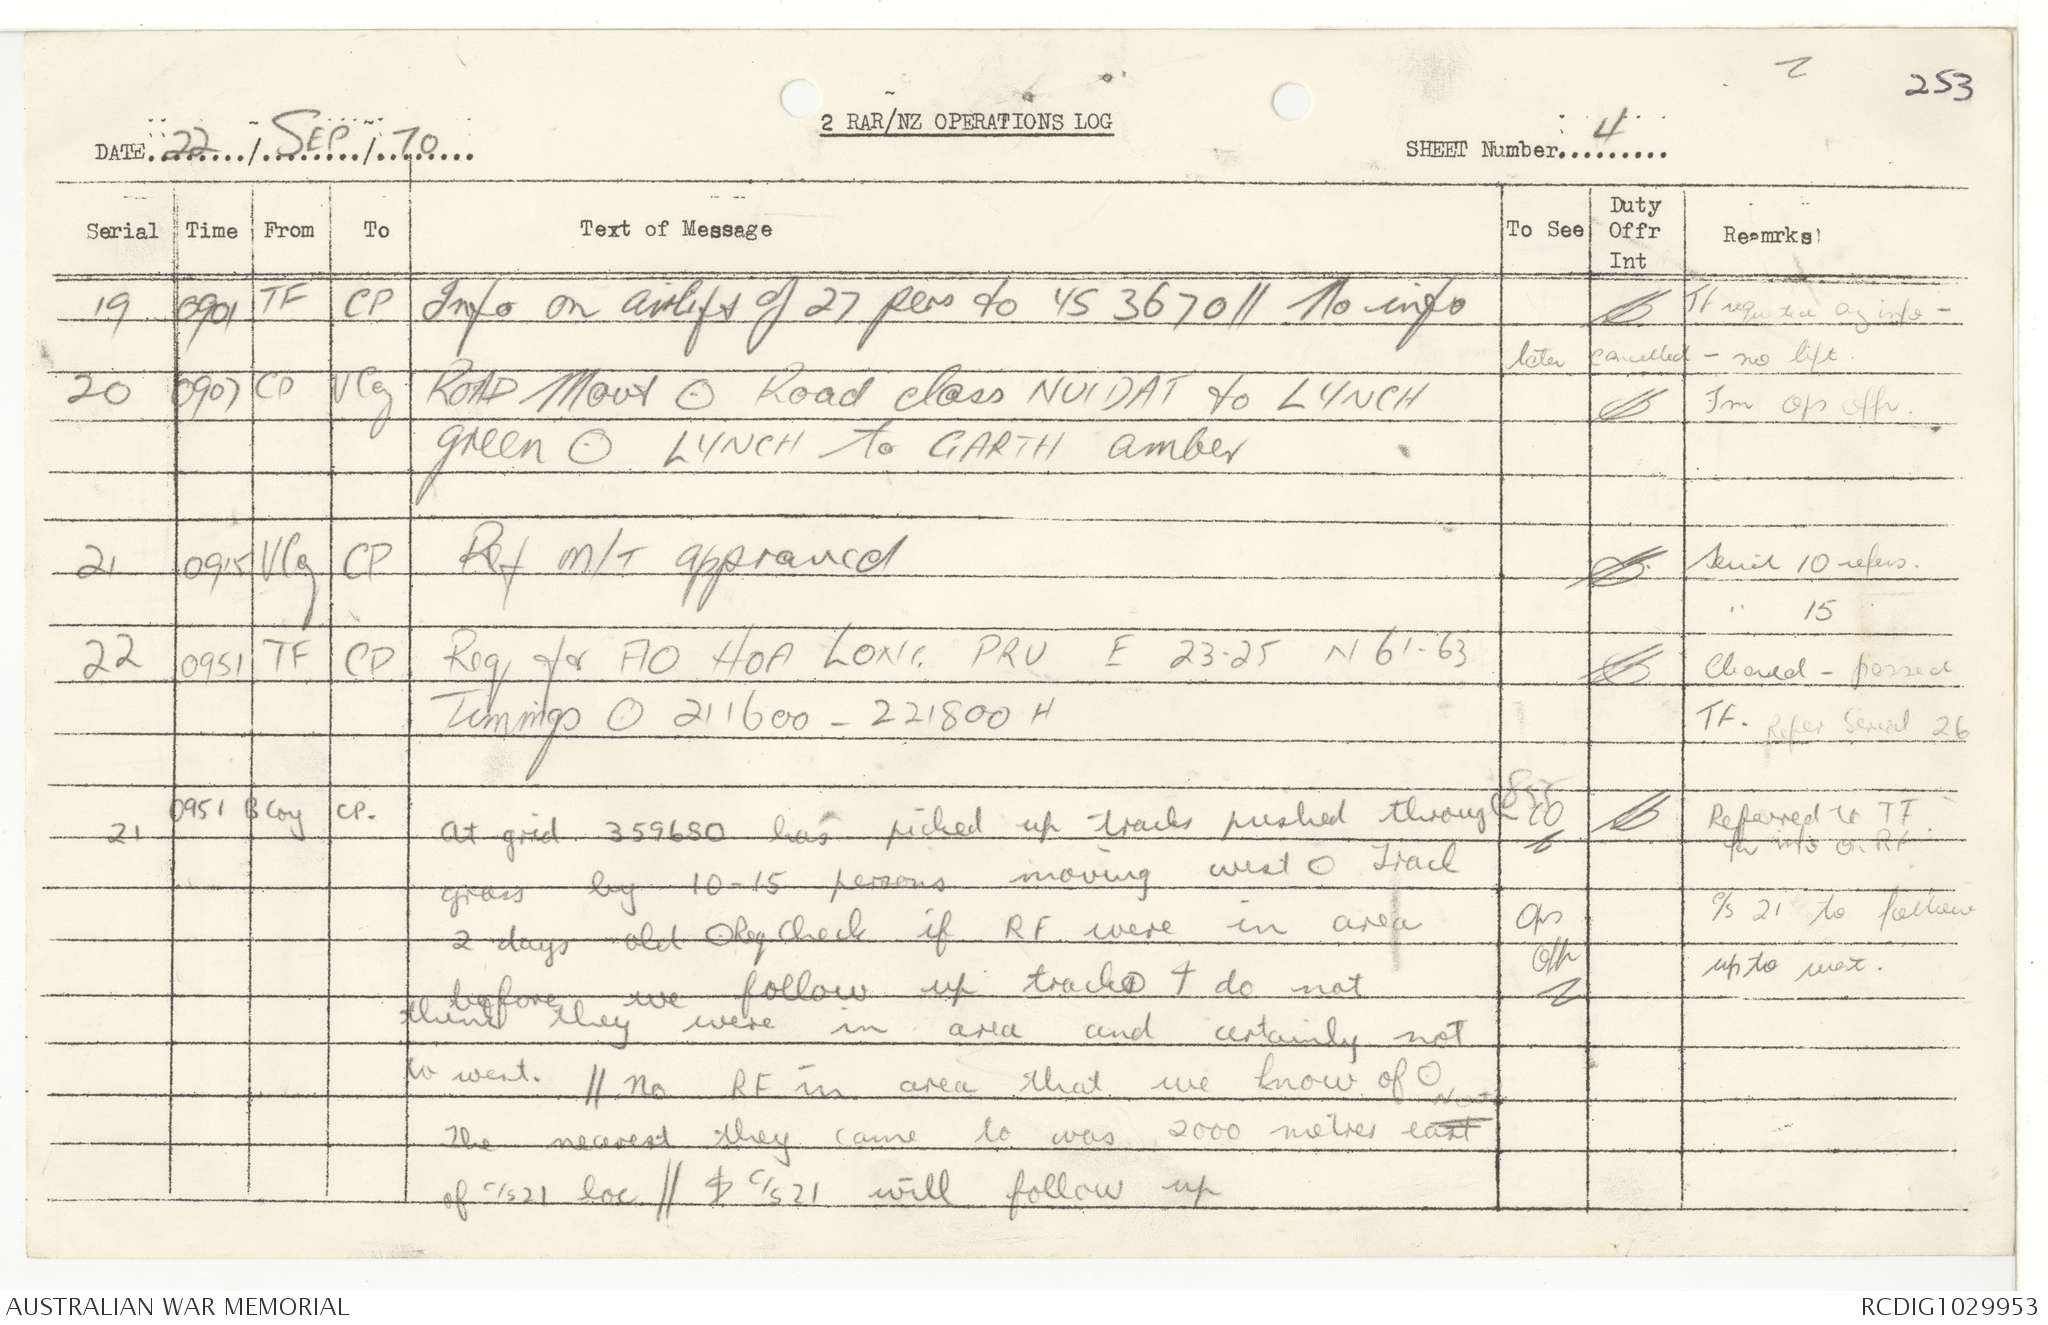 253
2 RAR/NZ OPERATIONS LOG
DATE 22 / SEP / 70
SHEET Number 4
Serial Time From To Text of Message To See Duty Offr Int Remrks
19 0901 TF CP Info on airlift of 27 pers to YS 3670 // No info TF requested info -
later cancelled - no lift.
20 0907 CP VCoy ROAD Movt O Road class NUI DAT to LYNCH Fm Ops offr.
green O LYNCH to GARTH amber
21 0915 VCoy CP Ref M/T approved Serial 10 refers.
" 15
22 0951 TF CP Req for AO HOA LONG PRU E 23-25 N 61-63 Cleared - passed
Timmings O 211600 - 221800 H TF. Refer Serial 26
21 0951 B Coy CP. at grid 359680 has picked up tracks pushed through CO Referred to TF
grass by 10-15 persons moving west O Track for info on RF
2 days old O Req Check if RF were in area Ops c/s 21 to follow
before we follow up tracks I do not Offr up to west.
think they were in area and certainly not
to west. // No RF in area that we know of O
The nearest they came to was 2000 metres east
of c/s21 loc // c/s21 will follow up
AUSTRALIAN WAR MEMORIAL
RCDIG1029953